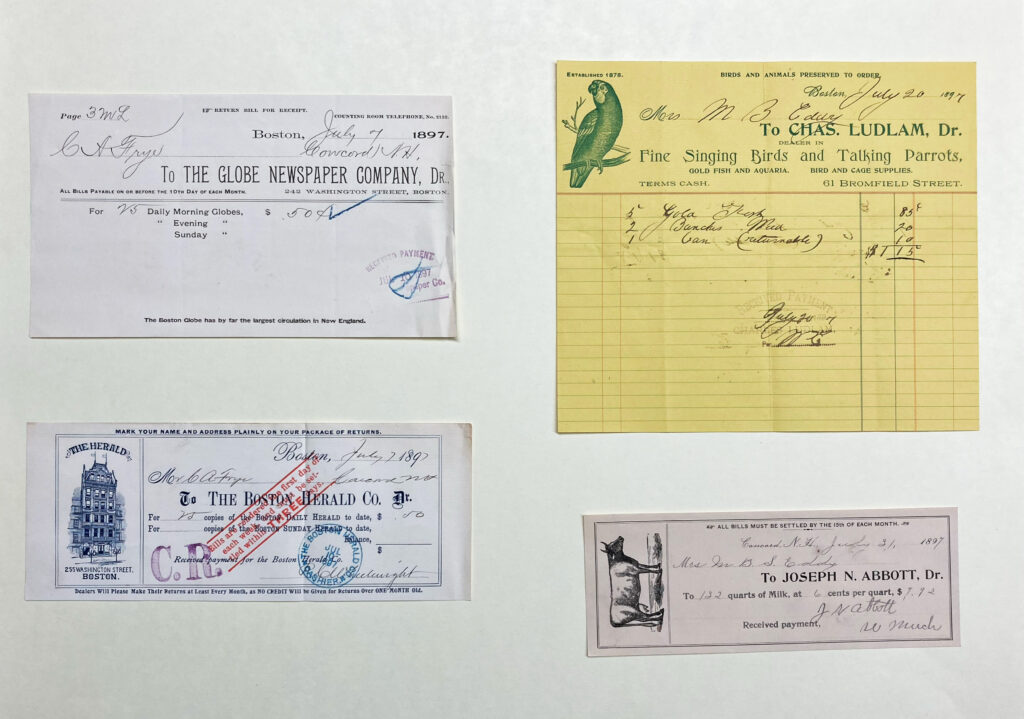 ☞ RETURN BILL FOR RECEIPT.
Page 3
COUNTING ROOM TELEPHONE, No. 2133.
Boston, July 7 1897.
C A Frye Concord N.H.
To THE GLOBE NEWSPAPER COMPANY, Dr.
ALL BILLS PAYABLE ON OR BEFORE THE 10TH DAY OF EACH MONTH. 242 WASHINGTON STREET, BOSTON.
For 25 Daily Morning Globes, $ .50
" Evening "
" Sunday "
RECEIVED PAYMENT
The Boston Globe has by far the largest circulation in New England.
ESTABLISHED 1878. BIRDS AND ANIMALS PRESERVED TO ORDER.
Boston, July 20 1897
Mrs M B Eddy
To CHAS. LUDLAM, Dr.
DEALER IN
Fine Singing Birds and Talking Parrots,
GOLD FISH AND AQUARIA. BIRD AND CAGE SUPPLIES.
TERMS CASH. 61 BROMFIELD STREET.
5 Gold Fish 85
2 Bunches 20
1 Can (returnable) 10
$1 15
RECEIVED PAYMENT
July 20 7
MARK YOUR NAME AND ADDRESS PLAINLY ON YOUR PACKAGE OF RETURNS.
THE HERALD
255 WASHINGTON STREET,
BOSTON.
Boston, July 7 1897
Mr C A Frye
To THE BOSTON HERALD CO. Dr.
For 25 copies of the BOSTON DAILY HERALD to date, $ .50
For copies of the BOSTON SUNDAY HERALD to date,
Balance, $
Received payment for the Boston Herald Co.
Bills are rendered the first day of
each week and must be set-
tled within THREE days.
C.R.
THE BOSTON HERALD
JUL
CASHIER
Dealers Will Please Make Their Returns at Least Every Month, as NO CREDIT Will be Given for Returns Over ONE MONTH Old.
ALL BILLS MUST BE SETTLED BY THE 15TH OF EACH MONTH.
Concord N.H. July 31, 1897
Mrs M B S Eddy
To JOSEPH N. ABBOTT, Dr.
To 132 quarts of Milk, at 6 cents per quart, $7.92
Received payment, J N Abbott